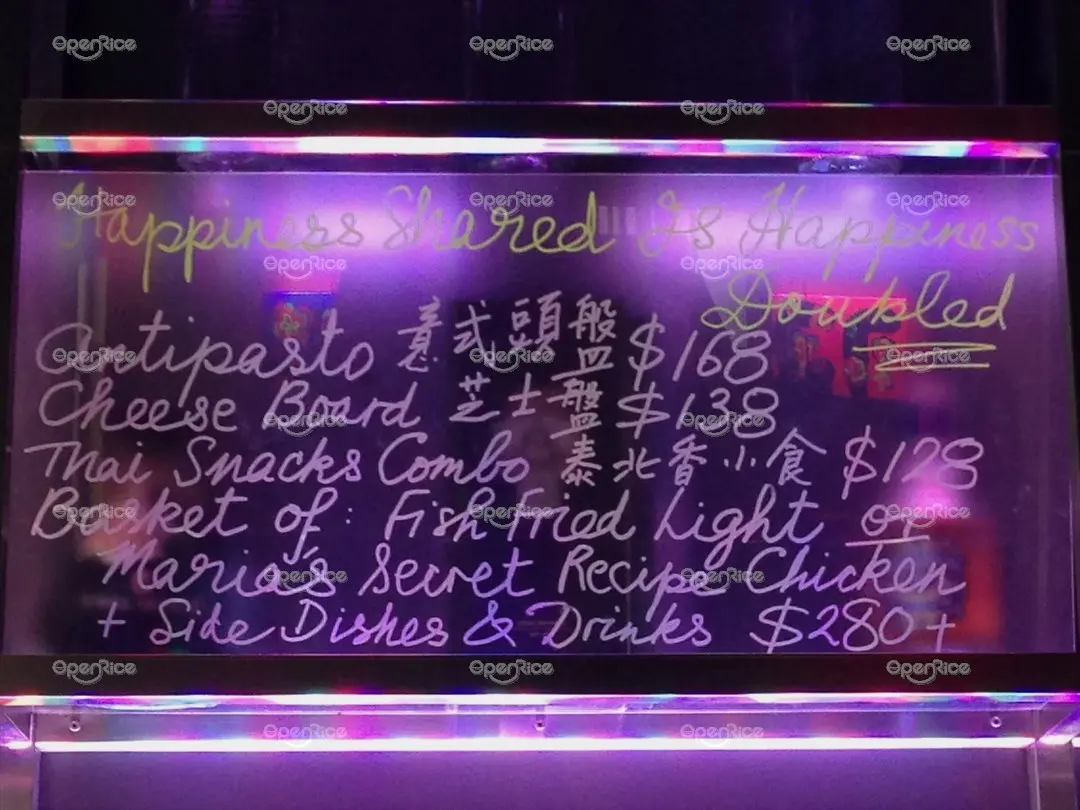 Happiness Shared Is Happiness
Doubled
Antipasto 意式頭盤 $168
Cheese Board 芝士盤 $138
Thai Snacks Combo 泰北香小食 $128
Basket of: Fish Fried Light or
Maria's Secret Recipe Chicken
+ Side Dishes & Drinks $280+
OpenRice